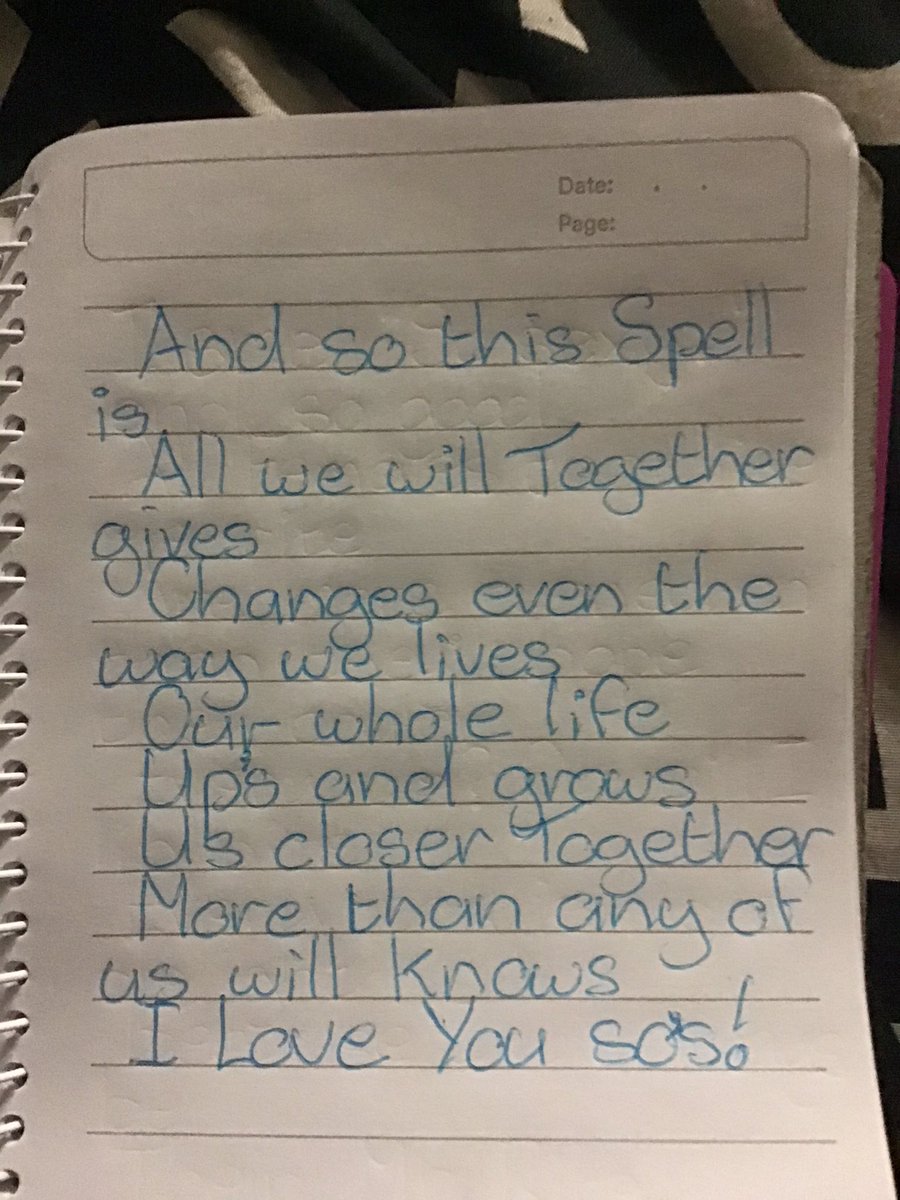 Date: . .
Page:
And so this Spell
is.
All we will Together
gives
Changes even the
way we lives
Our whole life
Up's and grows
Us closer Together
More than any of
us will knows
I Love You so's!